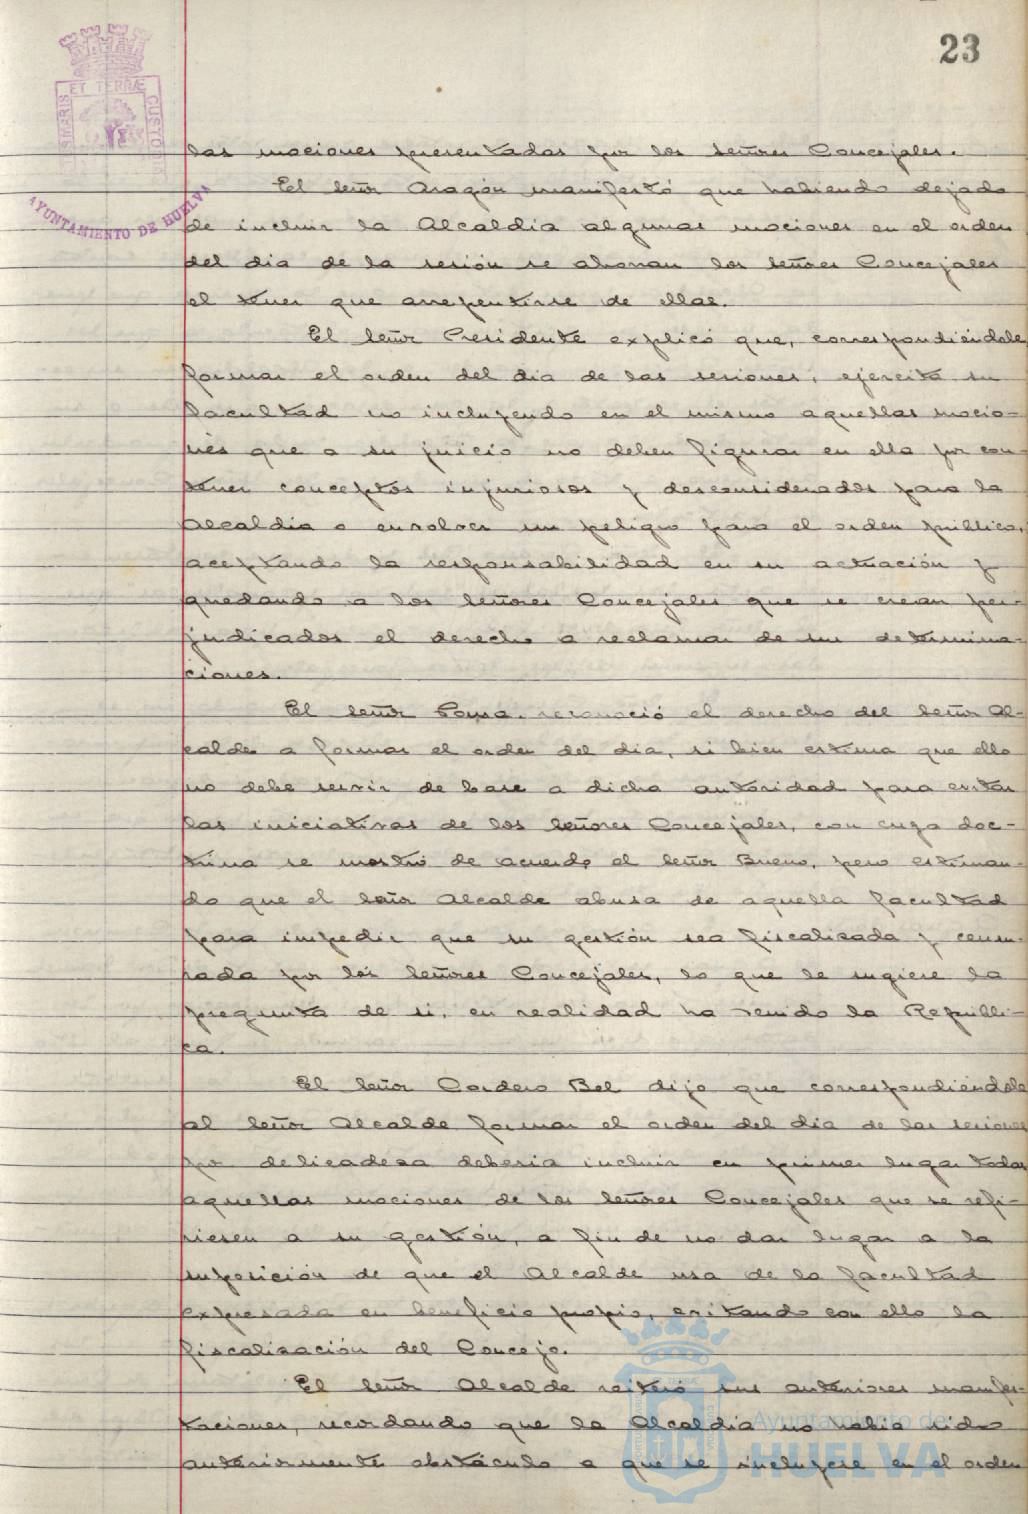 23
ET TERRÆ
MARIS
CUSTODIA
AYUNTAMIENTO DE HUELVA
las mociones presentadas por los señores Concejales.
El señor Aragón manifestó que habiendo dejado
de incluir la Alcaldía algunas mociones en el orden
del día de la sesión se ahorran los señores Concejales
el tener que arrepentirse de ellas.
El señor Presidente explicó que, correspondiéndole
formar el orden del día de las sesiones, ejercita su
facultad no incluyendo en el mismo aquellas mocio-
nes que a su juicio no deben figurar en ella por con-
tener conceptos injuriosos y desconsiderados para la
Alcaldía o envolver un peligro para el orden público,
aceptando la responsabilidad en su actuación y
quedando a los señores Concejales que se crean per-
judicados el derecho a reclamar de sus determina-
ciones.
El señor reconoció el derecho del señor Al-
calde a formar el orden del día, si bien estima que ello
no debe servir de base a dicha autoridad para evitar
las iniciativas de los señores Concejales, con cuya doc-
trina se mostró de acuerdo el señor Bueno, pero estiman-
do que el señor Alcalde abusa de aquella facultad
para impedir que su gestión sea fiscalizada y censu-
rada por los señores Concejales, lo que le sugiere la
pregunta de si, en realidad ha venido la Repúbli-
ca.
El señor Cordero Bel dijo que correspondiéndole
al señor Alcalde formar el orden del día de las sesiones
por delicadesa debería incluir en primer lugar todas
aquellas mociones de los señores Concejales que se refi-
riesen a su gestión, a fin de no dar lugar a la
suposición de que el Alcalde usa de la facultad
expresada en beneficio propio, evitando con ello la
fiscalización del Concejo.
El señor Alcalde reiteró sus anteriores manifes-
taciones, recordando que la Alcaldía no había sido
anteriormente obstáculo a que se incluyese en el orden
Ayuntamiento de
HUELVA